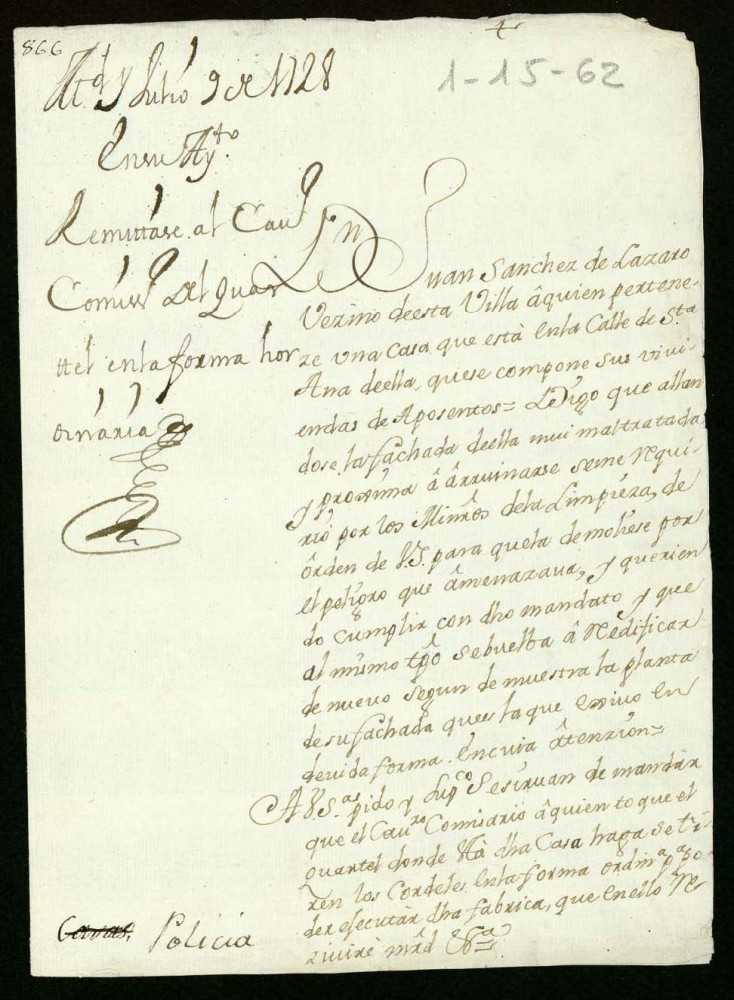 866
+
1-15-62
Md y Julio 9 de 1728
En su Aytto.
Remittase al Cavro
Comisso del Quar
ttel en la forma hor
dinaria
Juan Sanchez de Lazaro
Vezino de esta Villa â quien pertene-
ze una Casa que està en la Calle de Sta
Ana de ella, que se compone sus vivi-
endas de Aposentos= Digo que allan
dose la fachada de ella mui maltratada
y proxima â ârruinarse se me requi-
rio por los Minros de la Limpieza, de
ôrden de V.S. para que la demoliese por
el peligro que âmenazava, y querien
do cumplir con dho mandato y que
al mismo tpô se buelba â Redificar
de nuevo segun demuestra la planta
de su fachada que es la que exivo en
devida forma. En cuia âtenzion=
A V.S.as pido y supco se sirvan de mandar
que el Cavro Comisario â quien toque el
quartel donde stà dha Casa haga se ti-
ren los Cordeles en la forma ordinra pa po
der ejecutar dha fabrica, que en ello Re
zivirè mrd Va
Policia